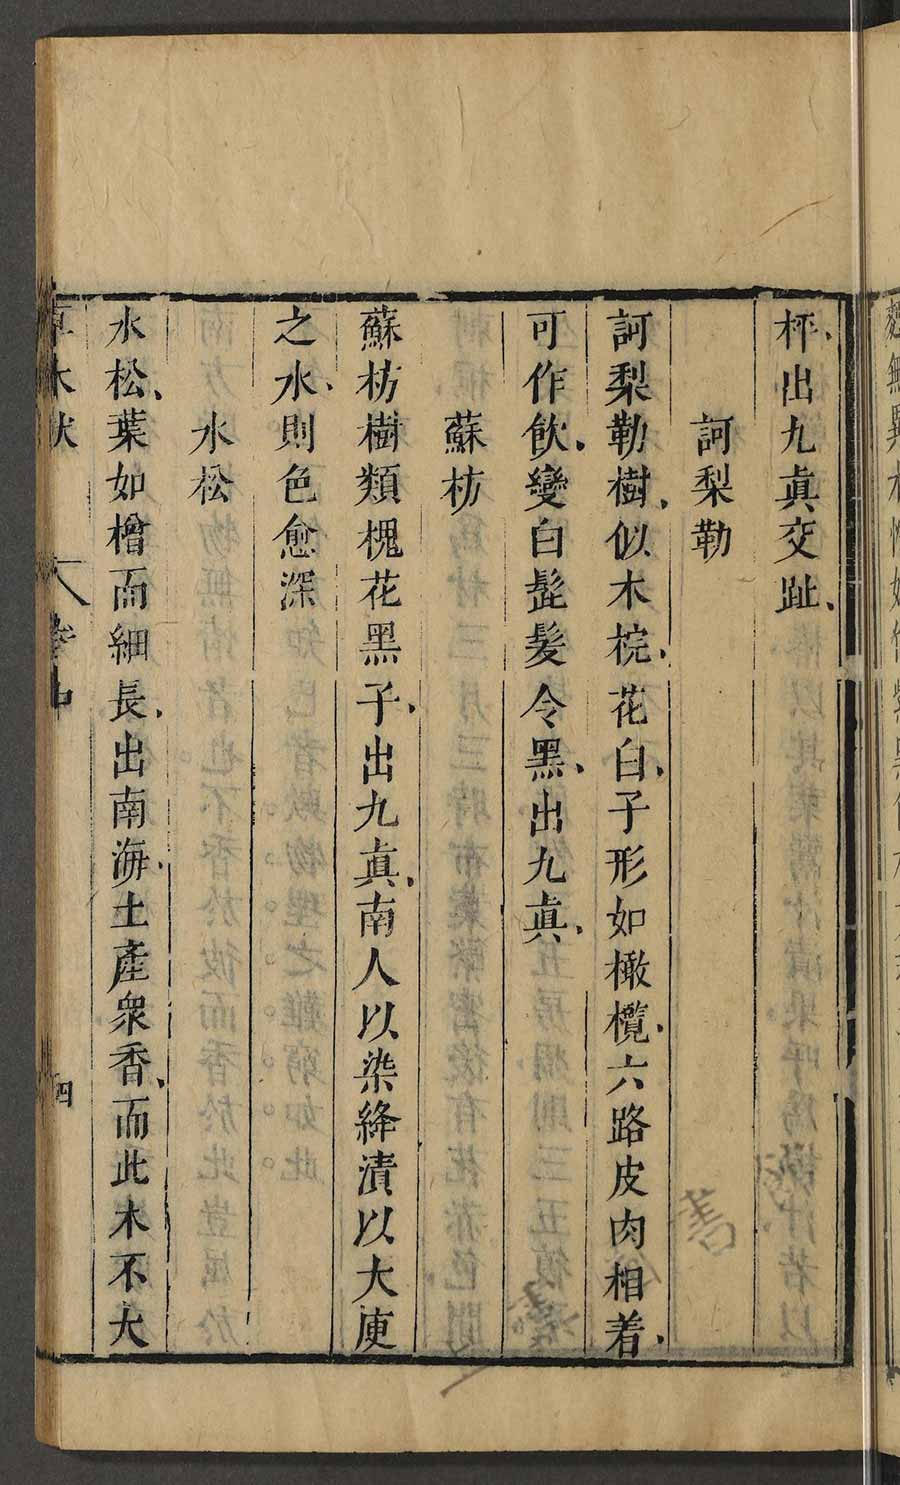 枰出九眞交趾
訶梨勒
訶梨勒樹似木梡花白子形如橄欖六路皮肉相着
可作飲變白髭髮令黑出九眞
蘇枋
蘇枋樹類槐花黑子出九眞南人以染絳漬以大庾
之水則色愈深
水松
水松葉如檜而細長出南海土產衆香而此木不大
草木狀 卷中 四